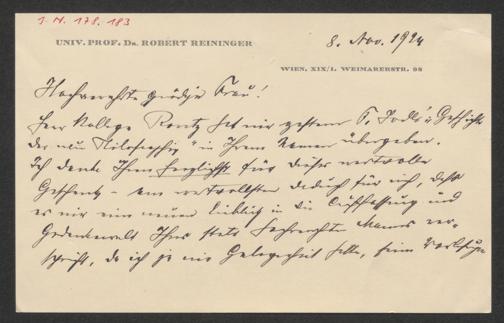 I. N. 178.183
UNIV. PROF. DR. ROBERT REININGER
8. Nov. 1924
WIEN, XIX/1. WEIMARERSTR. 98
Hochverehrte gnädige Frau!
Herr Kollege hat mir gestern F. Jodls „Geschichte
der neu. Philosophie" in Ihrem Namen übergeben.
Ich danke Ihnen herzlichst für dieses wertvolle
Geschenk – am wertvollsten dadurch für mich, daß
es mir einen neuen Einblick in die Auffassung und
Gedankenwelt Ihres stets verehrten Mannes ver-
schafft, da ich ja nie Gelegenheit hatte, seine